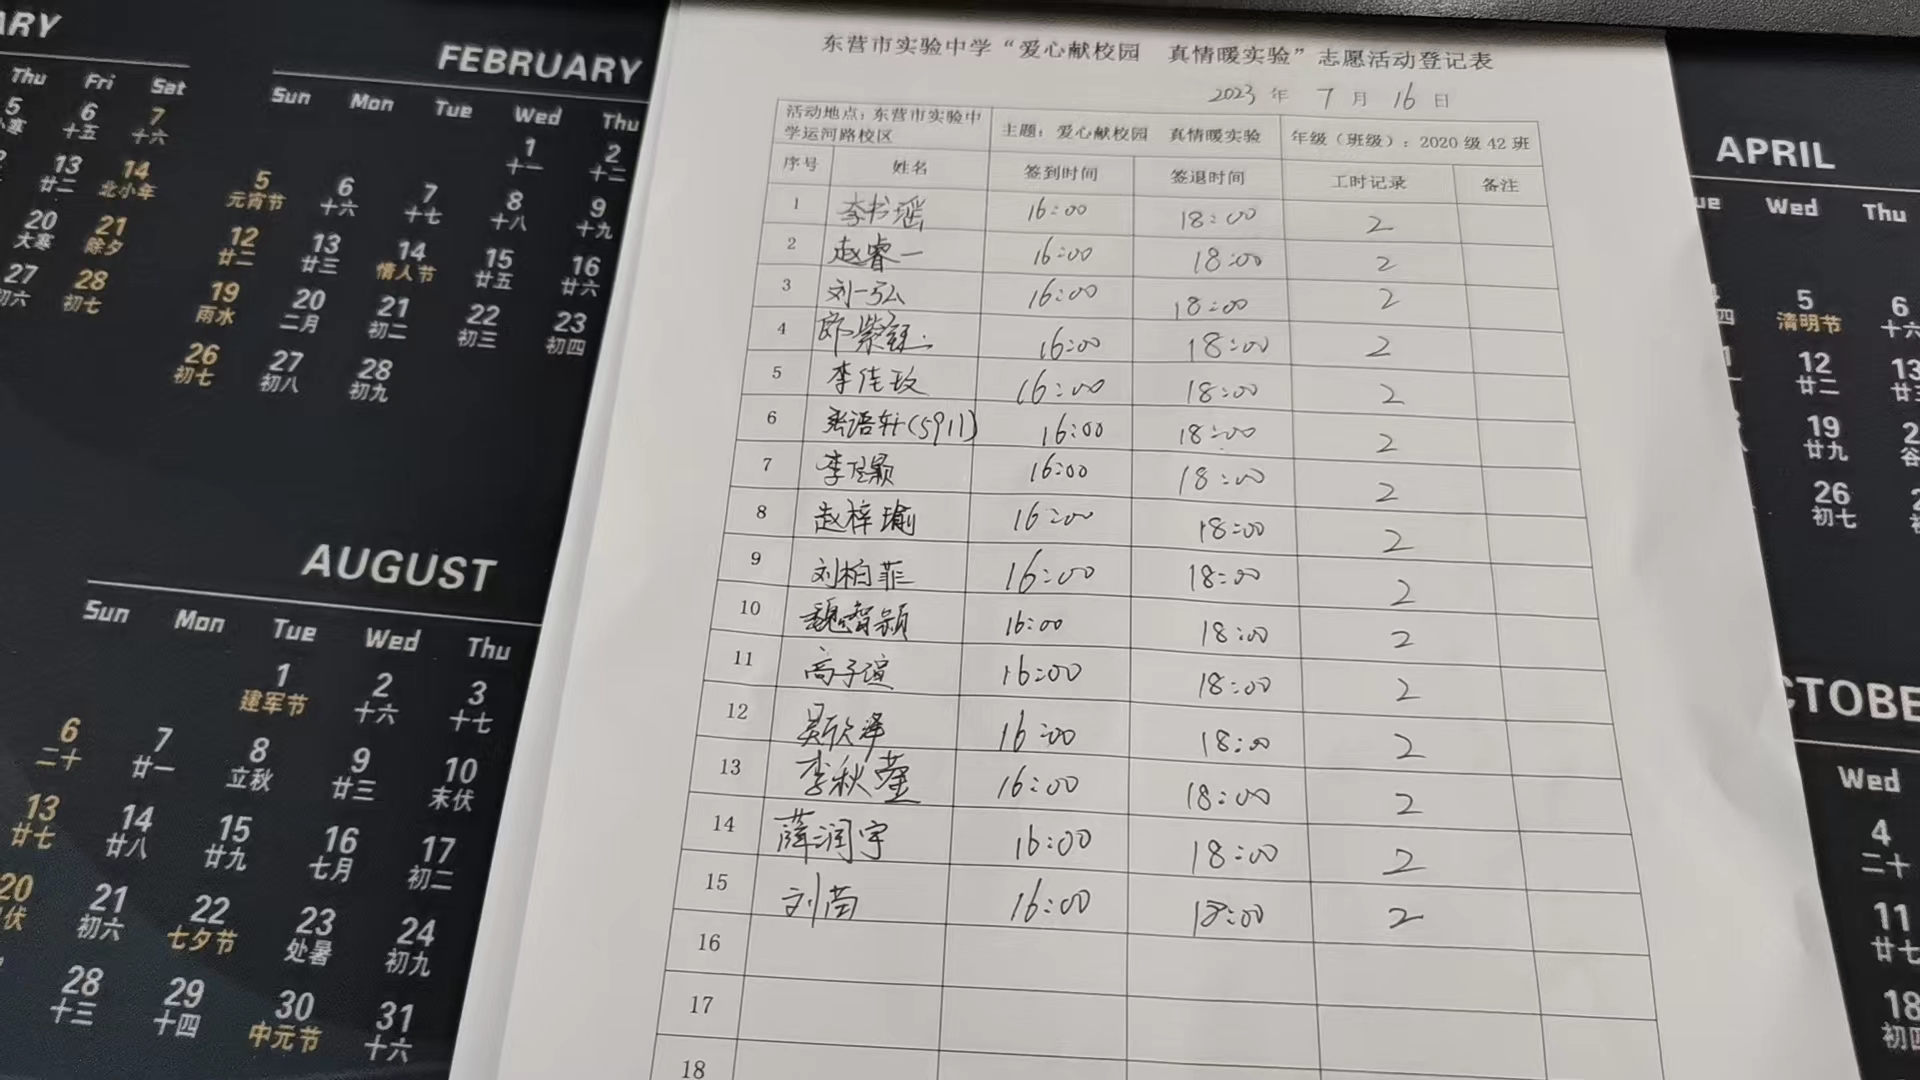 东营市实验中学“爱心献校园 真情暖实验”志愿活动登记表
2023 年 7 月 16 日
活动地点：东营市实验中学运河路校区 主题：爱心献校园 真情暖实验 年级（班级）：2020 级 42 班
序号 姓名 签到时间 签退时间 工时记录 备注
1 李书瑶 16:00 18:00 2
2 赵睿一 16:00 18:00 2
3 刘一弘 16:00 18:00 2
4 郎紫钰 16:00 18:00 2
5 李佳玫 16:00 18:00 2
6 张语轩(5911) 16:00 18:00 2
7 李佳颖 16:00 18:00 2
8 赵梓瑜 16:00 18:00 2
9 刘柏菲 16:00 18:00 2
10 魏智颖 16:00 18:00 2
11 高子瑄 16:00 18:00 2
12 吴欣泽 16:00 18:00 2
13 李秋莹 16:00 18:00 2
14 薛润宇 16:00 18:00 2
15 刘苗 16:00 18:00 2
16
17
18
ARY
Thu Fri Sat
5 6 7
小寒 十五 十六
13 14
廿二 北小年
20 21
大寒 除夕
27 28
初六 初七
FEBRUARY
Sun Mon Tue Wed Thu
1 2
十一 十二
5 6 7 8 9
元宵节 十六 十七 十八 十九
12 13 14 15 16
廿二 廿三 情人节 廿五 廿六
19 20 21 22 23
雨水 二月 初二 初三 初四
26 27 28
初七 初八 初九
AUGUST
Sun Mon Tue Wed Thu
1 2 3
建军节 十六 十七
6 7 8 9 10
二十 廿一 立秋 廿三 末伏
13 14 15 16 17
廿七 廿八 廿九 七月 初二
20 21 22 23 24
伏 初六 七夕节 处暑 初九
28 29 30 31
十三 十四 中元节 十六
APRIL
ue Wed Thu
5 6
四 清明节 十六
12 13
廿二
19
廿九
26
初七
CTOBE
Wed
4
二十
11
廿七
18
初四